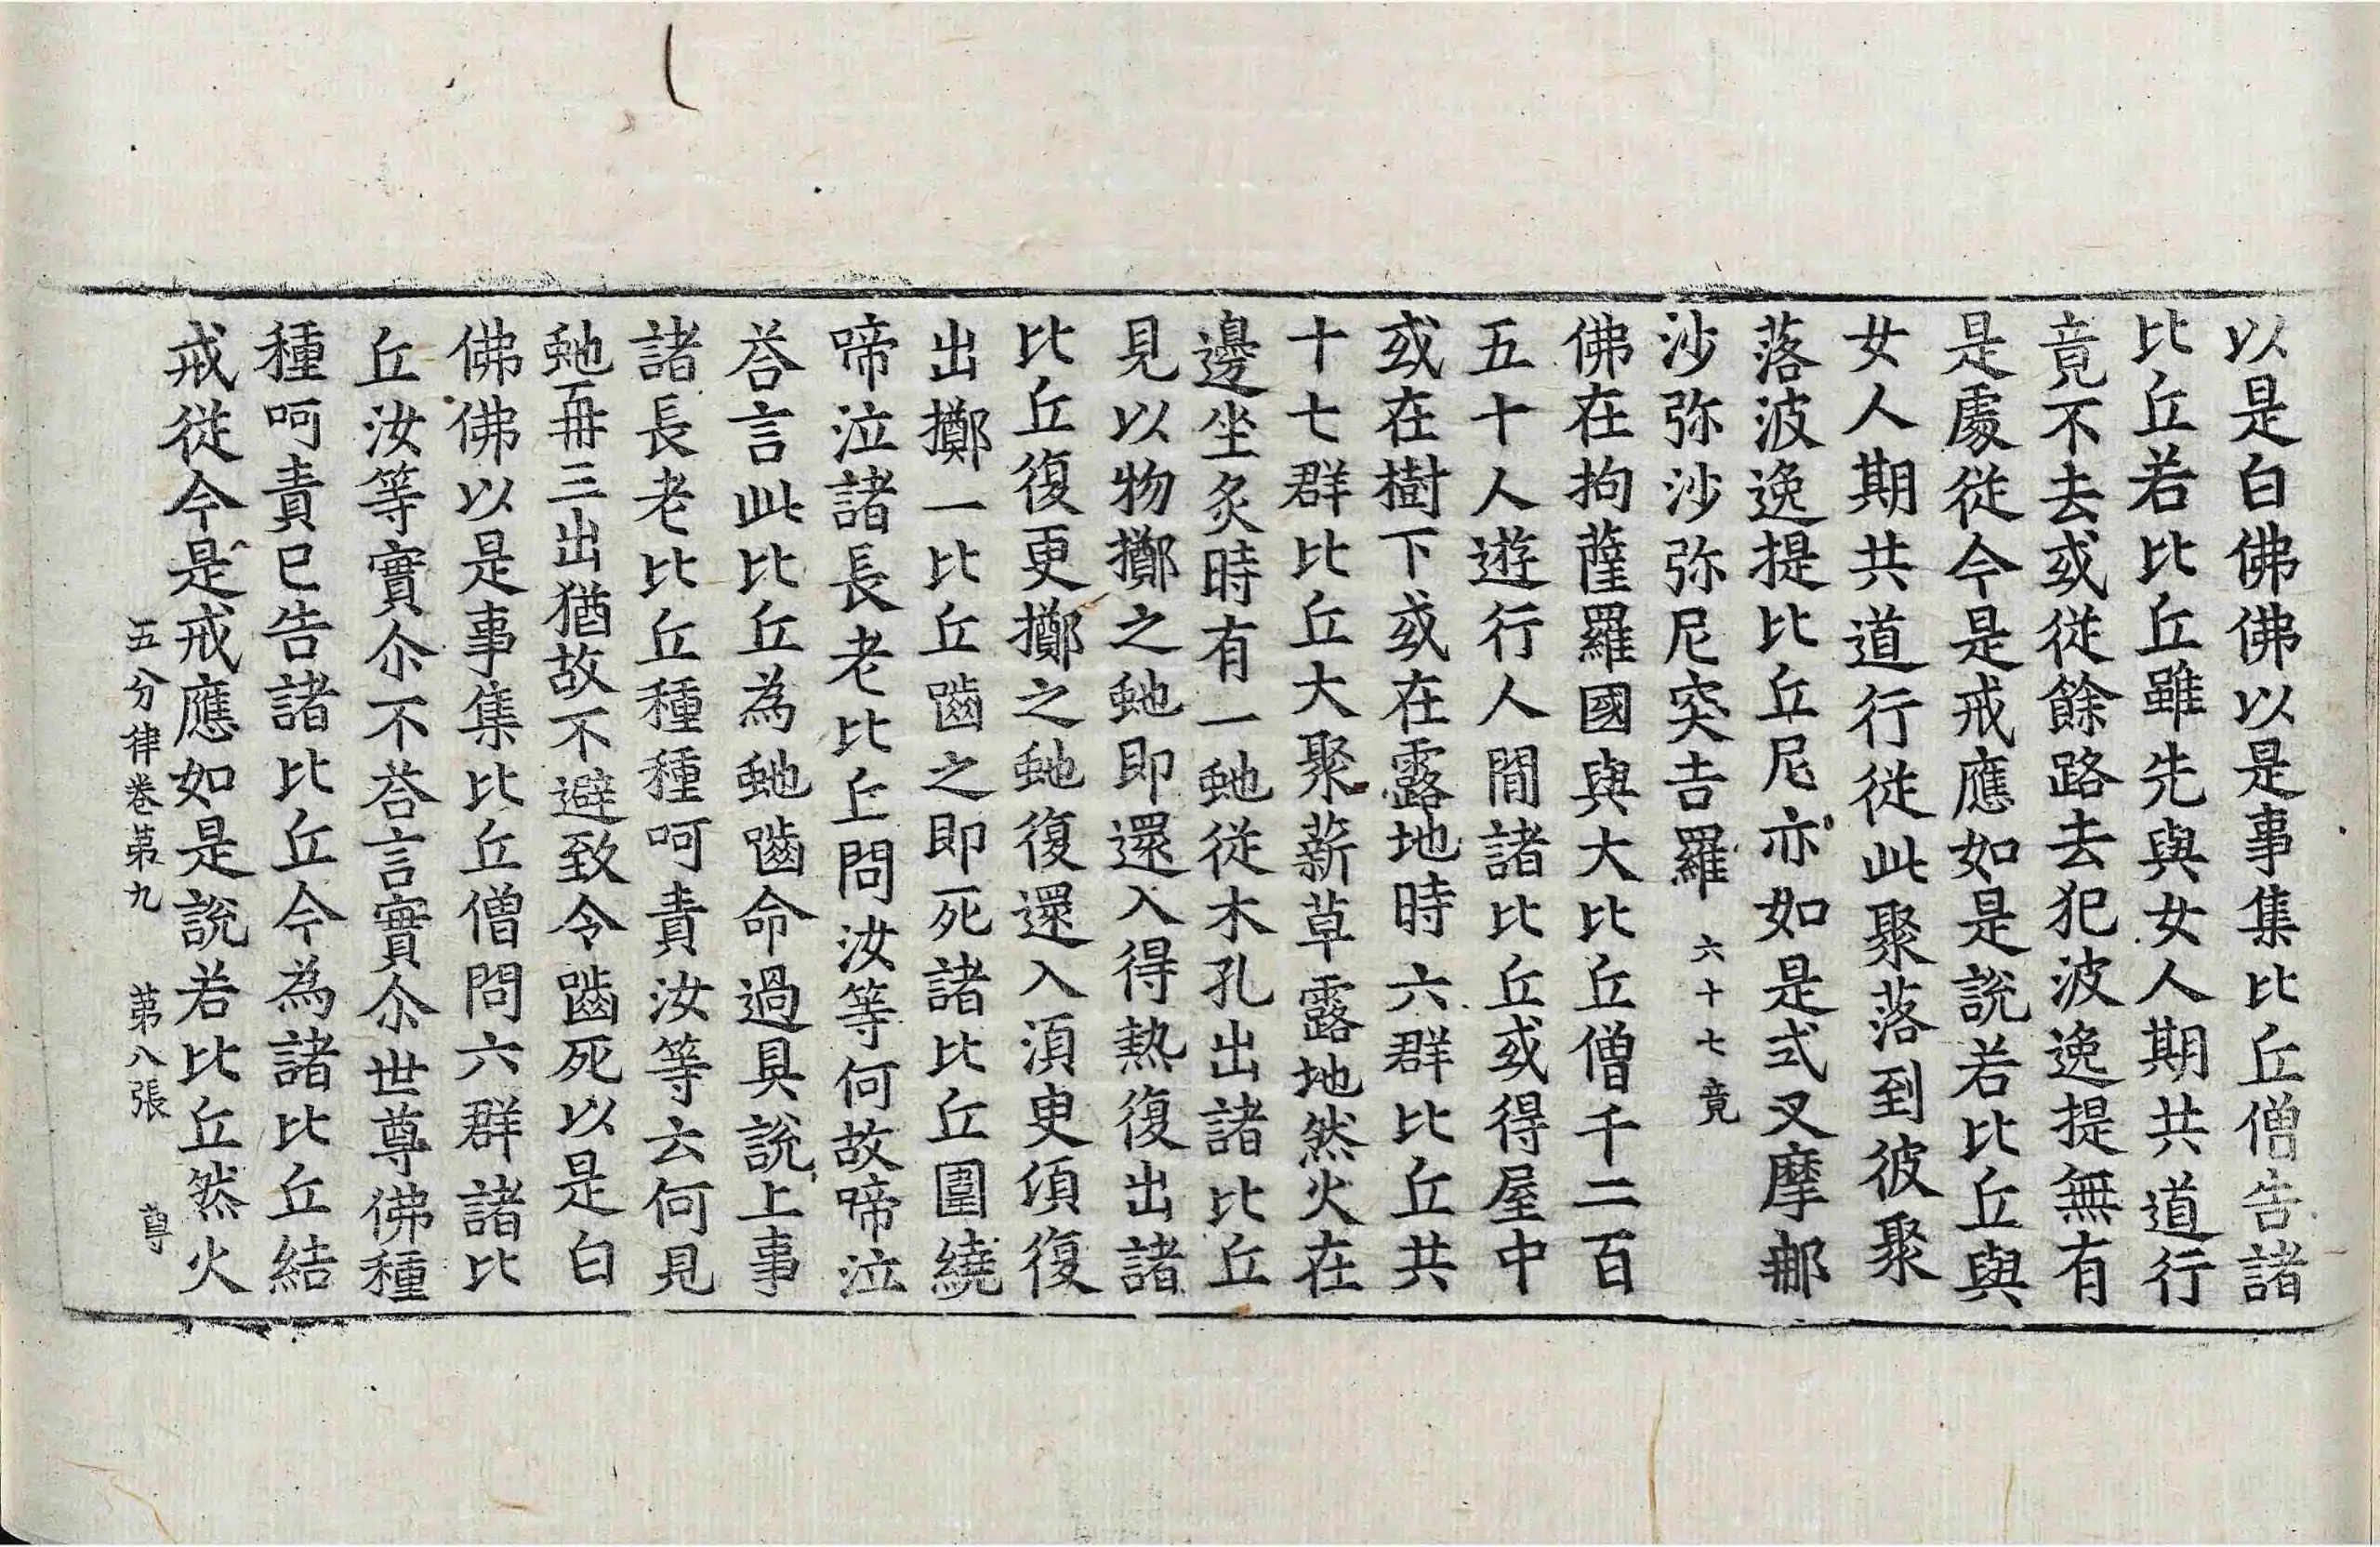 以是白佛佛以是事集比丘僧告諸
比丘若比丘雖先與女人期共道行
竟不去或從餘路去犯波逸提無有
是處從今是戒應如是說若比丘與
女人期共道行從此聚落到彼聚
落波逸提比丘尼亦如是式叉摩那
沙弥沙弥尼突吉羅 六十七竟
佛在拘薩羅國與大比丘僧千二百
五十人遊行人間諸比丘或得屋中
或在樹下或在露地時六群比丘共
十七群比丘大聚薪草露地然火在
邊坐炙時有一虵從木孔出諸比丘
見以物擲之虵即還入得熱復出諸
比丘復更擲之虵復還入湏臾湏復
出擲一比丘嚙之即死諸比丘圍繞
啼泣諸長老比丘問汝等何故啼泣
荅言此比丘為虵嚙命過具說上事
諸長老比丘種種呵責汝等云何見
虵再三出猶故不避致令嚙死以是白
佛佛以是事集比丘僧問六群諸比
丘汝等實尒不荅言實尒世尊佛種
種呵責已告諸比丘今為諸比丘結
戒從今是戒應如是說若比丘然火
五分律卷第九 第八張 尊